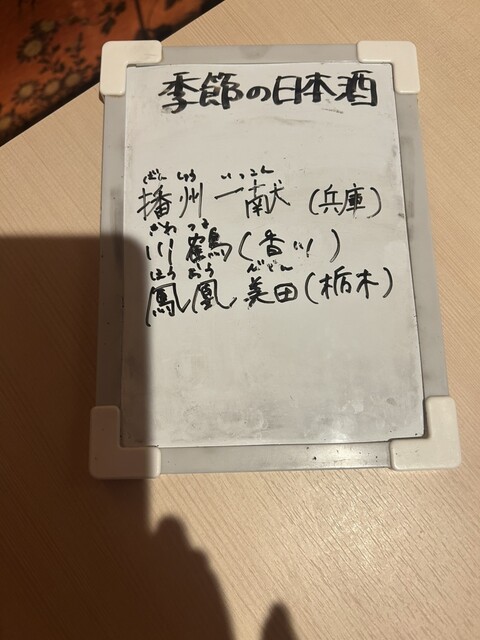 季節の日本酒
ばんしゅう いっこん
播州一献(兵庫)
かわ つる
川鶴(香川)
ほう おう びでん
鳳凰美田(栃木)